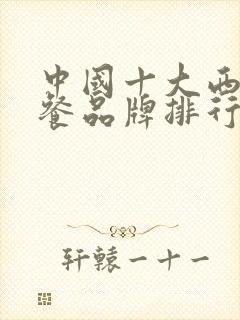 中國十大西
餐品牌排行
轩轅一十一